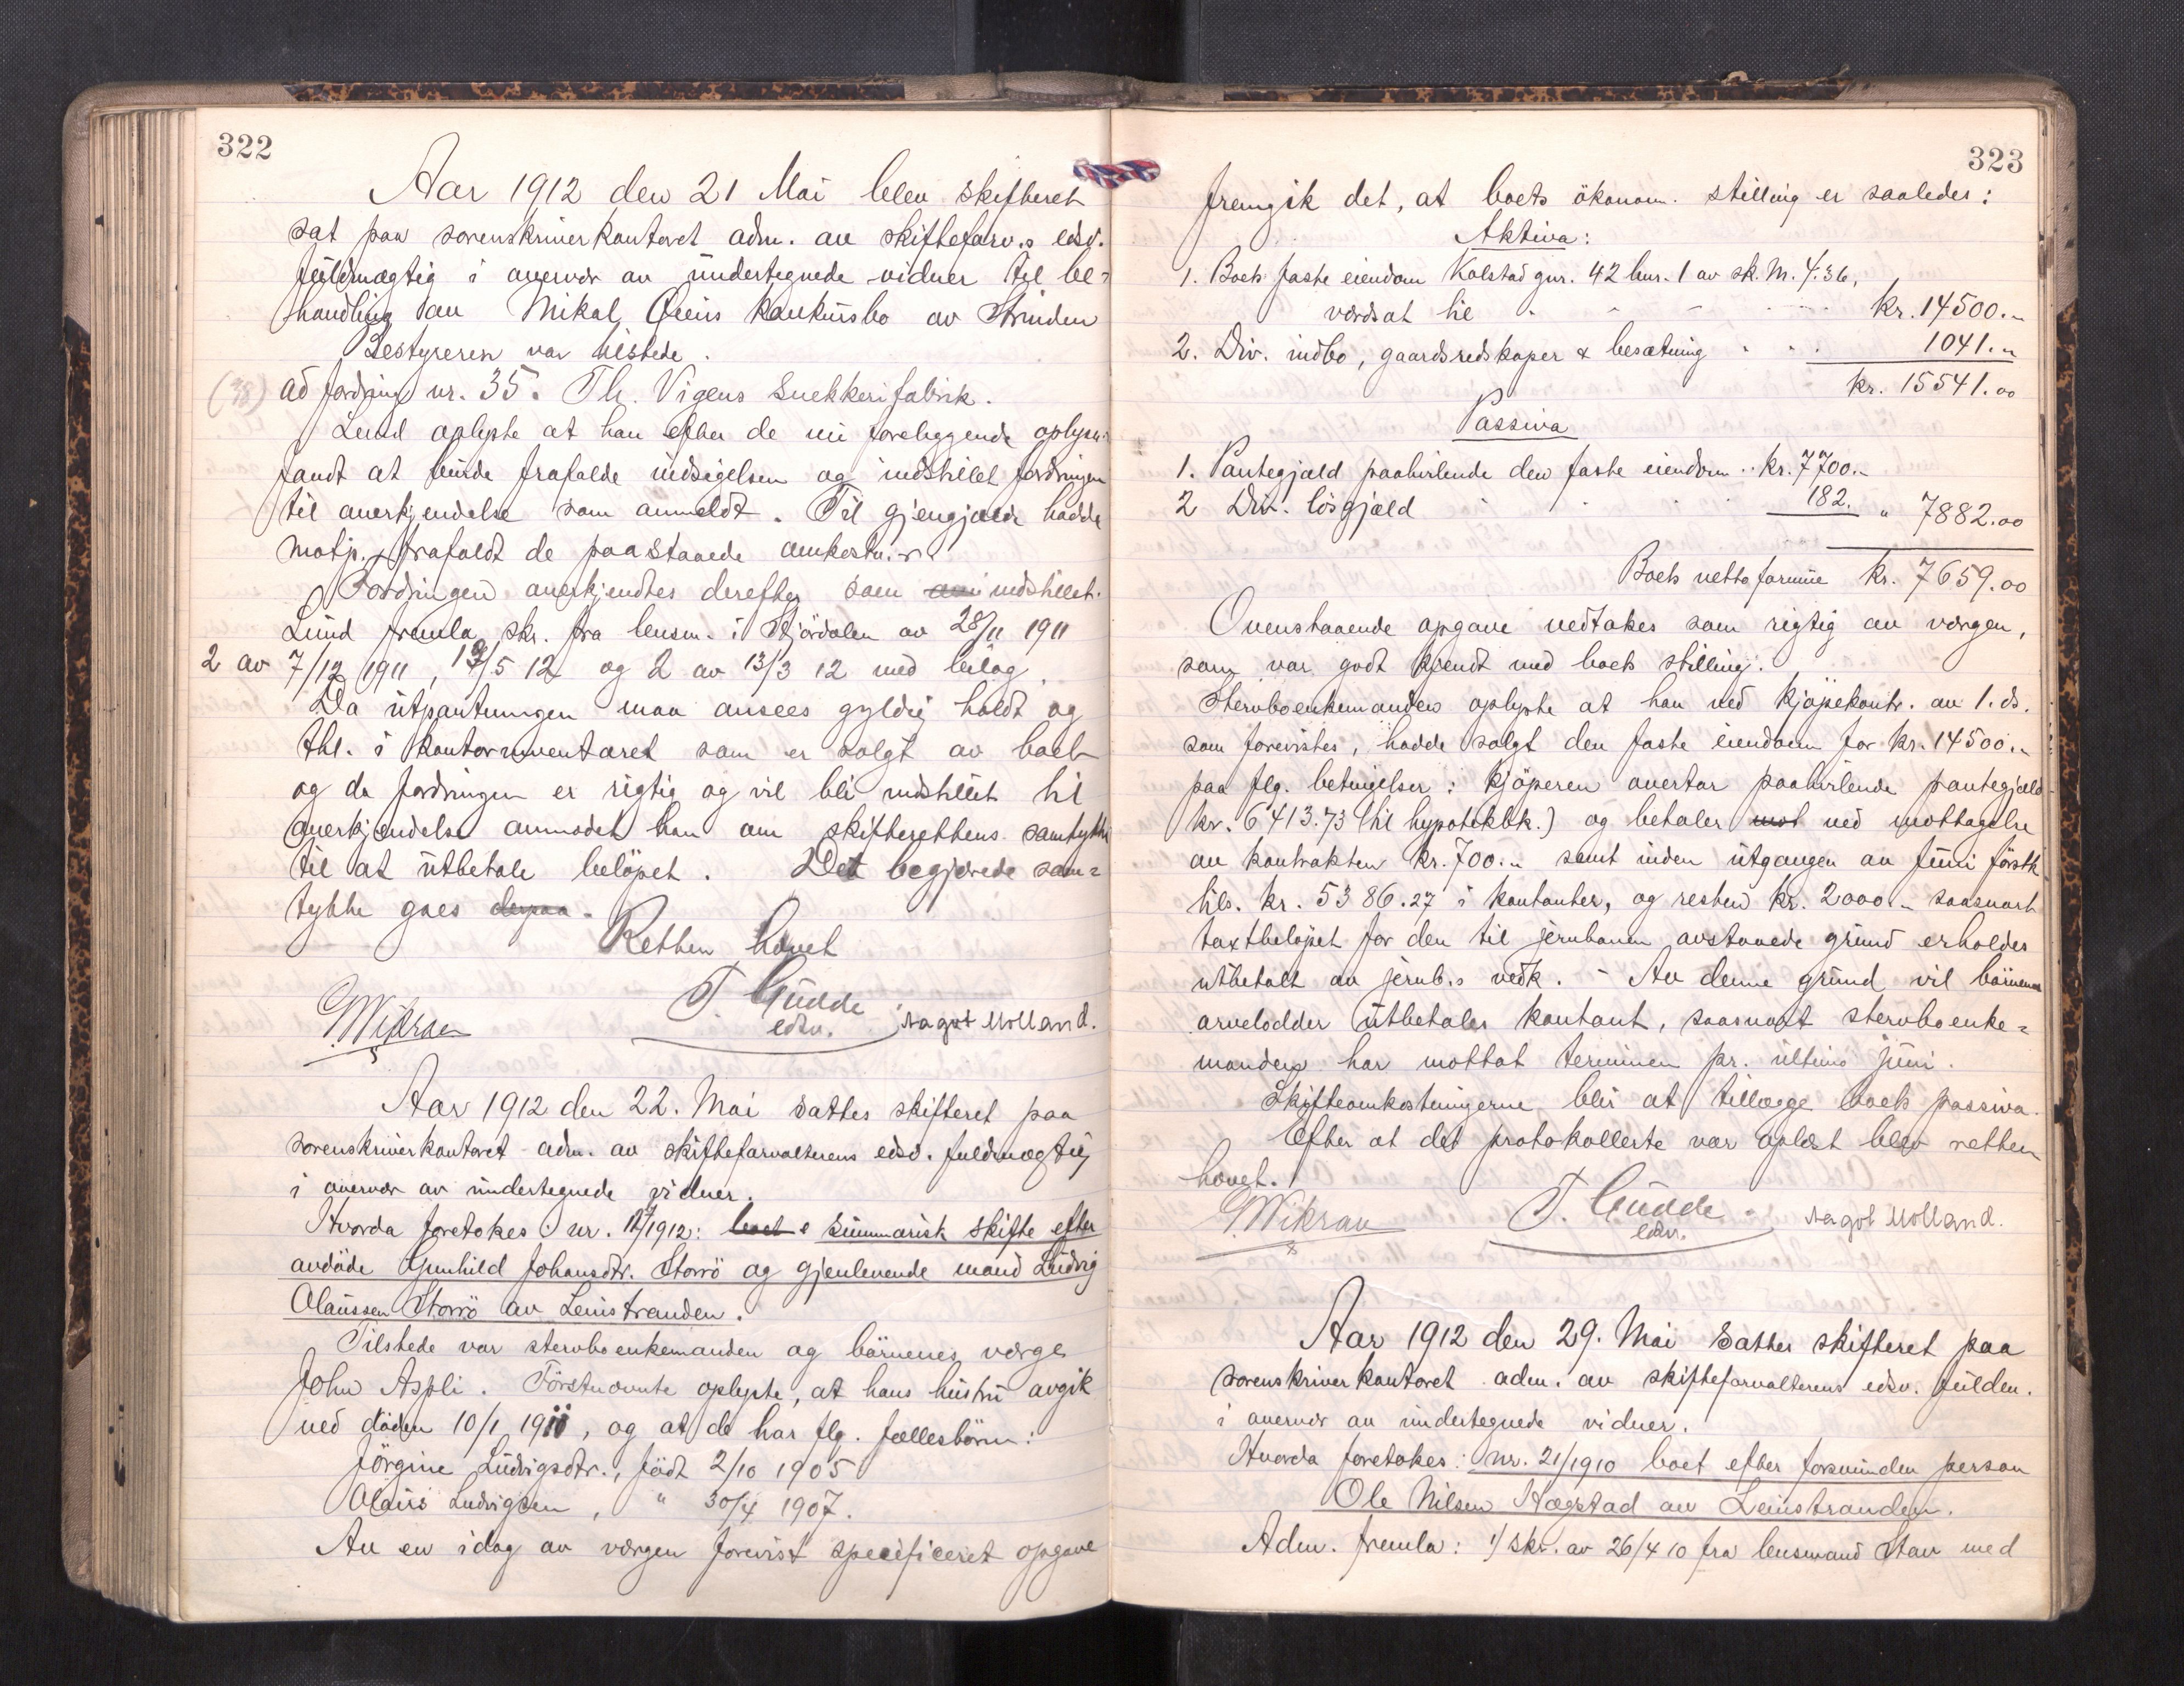 322
Aar 1912 den 21 Mai blev skifteret
sat paa sorenskriverkontoret adm. av skifteforv.s edsv.
fuldmægtig i overvær av undertegnede vidner til be-
handling av Mikal Øiens konkursbo av Strinden
Bestyreren var tilstede.
(38) ad fordring nr. 35. Th. Vigens Snekkerifabrik.
Lund oplyste at han efter de nu foreliggende oplysn.
fandt at burde frafalde indsigelsen og indstillet fordringen
til anerkjendelse som anmeldt. Til gjengjæld hadde
motp. frafaldt de paastaaede omkostn.r
Fordringen anerkjendtes derefter som indstillet.
Lund fremla skr. fra lensm. i Stjördalen av 28/11 1911
2 av 7/12 1911, 13/5 12 og 2 av 13/3 12 med bilag.
Da utpantningen maa ansees gyldig holdt og
thl. i kontorinventaret som er solgt av boet
og da fordringen er rigtig og vil bli indstillet til
anerkjendelse anmodet han om skifterettens samtykke
til at utbetale belöpet. Det begjærede sam-
tykke gaes derpaa.
Retten hævet
G. Wikran T. Gudde Aagot Molland.
edsv.
Aar 1912 den 22. Mai sattes skifteret paa
sorenskriverkontoret adm. av skifteforvalterens edsv. fuldmægtig
i overvær av undertegnede vidner.
Hvorda foretokes nr. 12/1912: boet e summarisk skifte efter
avdöde Gunhild Johansdtr. Storrö og gjenlevende mand Ludvig
Olaussen Storrö av Leinstranden.
Tilstede var stervboenkemanden og börnenes værge
John Aspli. Förstnævnte oplyste, at hans hustru avgik
ved döden 10/1 1911, og at de har flg. fællesbörn:
Jörgine Ludvigsdtr., födt 2/10 1905
Olaus Ludvigsen, " 30/4 1907.
Av en idag av værgen forevist specificeret opgave
323
fremgik det, at boets ökonom. stilling er saaledes:
Aktiva:
1. Boets faste eiendom Kolstad gnr. 42 bnr. 1 av sk. M. 4.36,
værdsat til kr. 14500.-
2. Div. indbo, gaardsredskaper & besætning 1041.-
kr. 15541.00
Passiva
1. Pantegjæld paahvilende den faste eiendom .. kr. 7700.-
2 Div. lösgjæld 182. " 7882.00
Boets nettoformue kr. 7659.00
Ovenstaaende opgave vedtokes som rigtig av værgen,
som var godt kjendt med boets stilling.
Stervboenkemanden oplyste at han ved kjöpekontr. av 1. ds.
som forevistes, hadde solgt den faste eiendom for kr. 14500.-
paa flg. betingelser: kjöperen overtar paahvilende pantegjæld
kr. 6413.73 (til hypotekbk.) og betaler mot ved mottagelse
av kontrakten kr. 700.- samt inden utgangen av juni förstk.
tils. kr. 5386.27 i kontanter, og resten kr. 2000.- saasnart
taxtbelöpet for den til jernbanen avstaaede grund erholdes
utbetalt av jernb.s vedk. - Av denne grund vil börnenes
arvelodder utbetales kontant, saasnart stervboenke-
manden har mottat terminen pr. ultimo juni.
Skifteomkostningerne blir at tillægge boets passiva.
Efter at det protokollerte var oplæst blev retten
hævet.
G. Wikran T. Gudde Aagot Molland.
edsv.
Aar 1912 den 29. Mai sattes skifteret paa
sorenskriverkontoret adm. av skifteforvalterens edsv. fuldm.
i overvær av undertegnede vidner.
Hvorda foretokes: nr. 21/1910 boet efter forsvunden person
Ole Nilsen Hægstad av Leinstranden.
Adm. fremla: 1) skr. av 26/4 10 fra lensmand Stav med